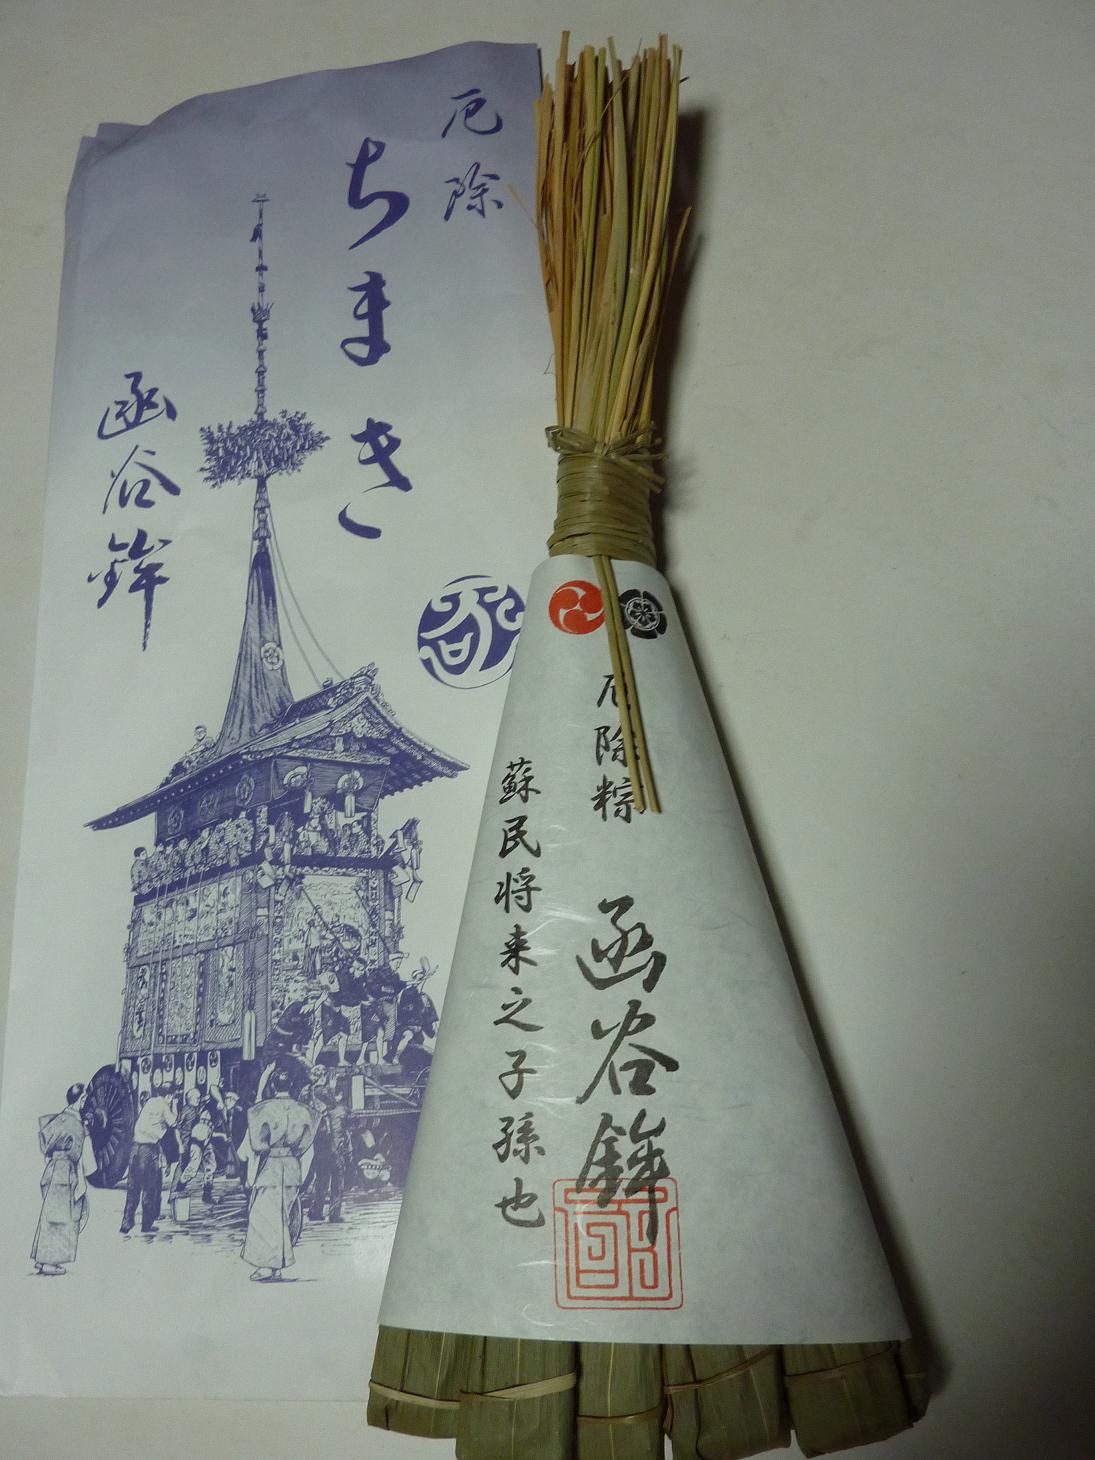 厄除
ちまき
函谷鉾
厄除粽 函谷鉾
蘇民将来之子孫也